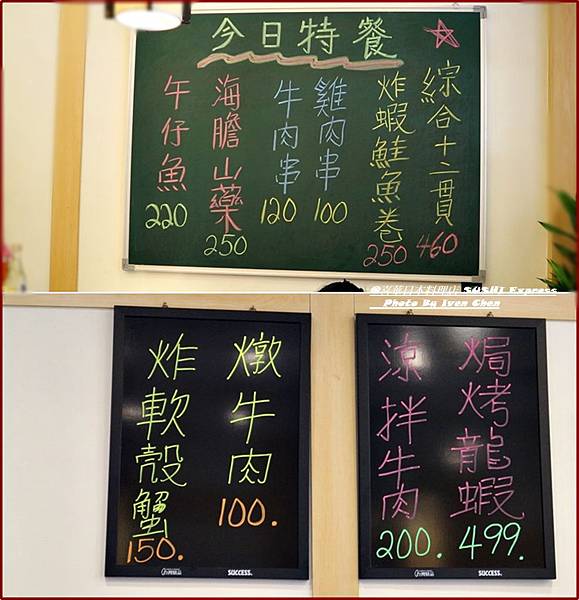 今日特餐
綜合十二貫
460
炸蝦鮭魚卷
250
雞肉串
100
牛肉串
120
海膽山藥
250
午仔魚
220
@嘉華日本料理店 SUSHI Express
Photo By Iven Chen
燉牛肉
100.
炸軟殼蟹
150.
SUCCESS.
焗烤龍蝦
499.
涼拌牛肉
200.
SUCCESS.